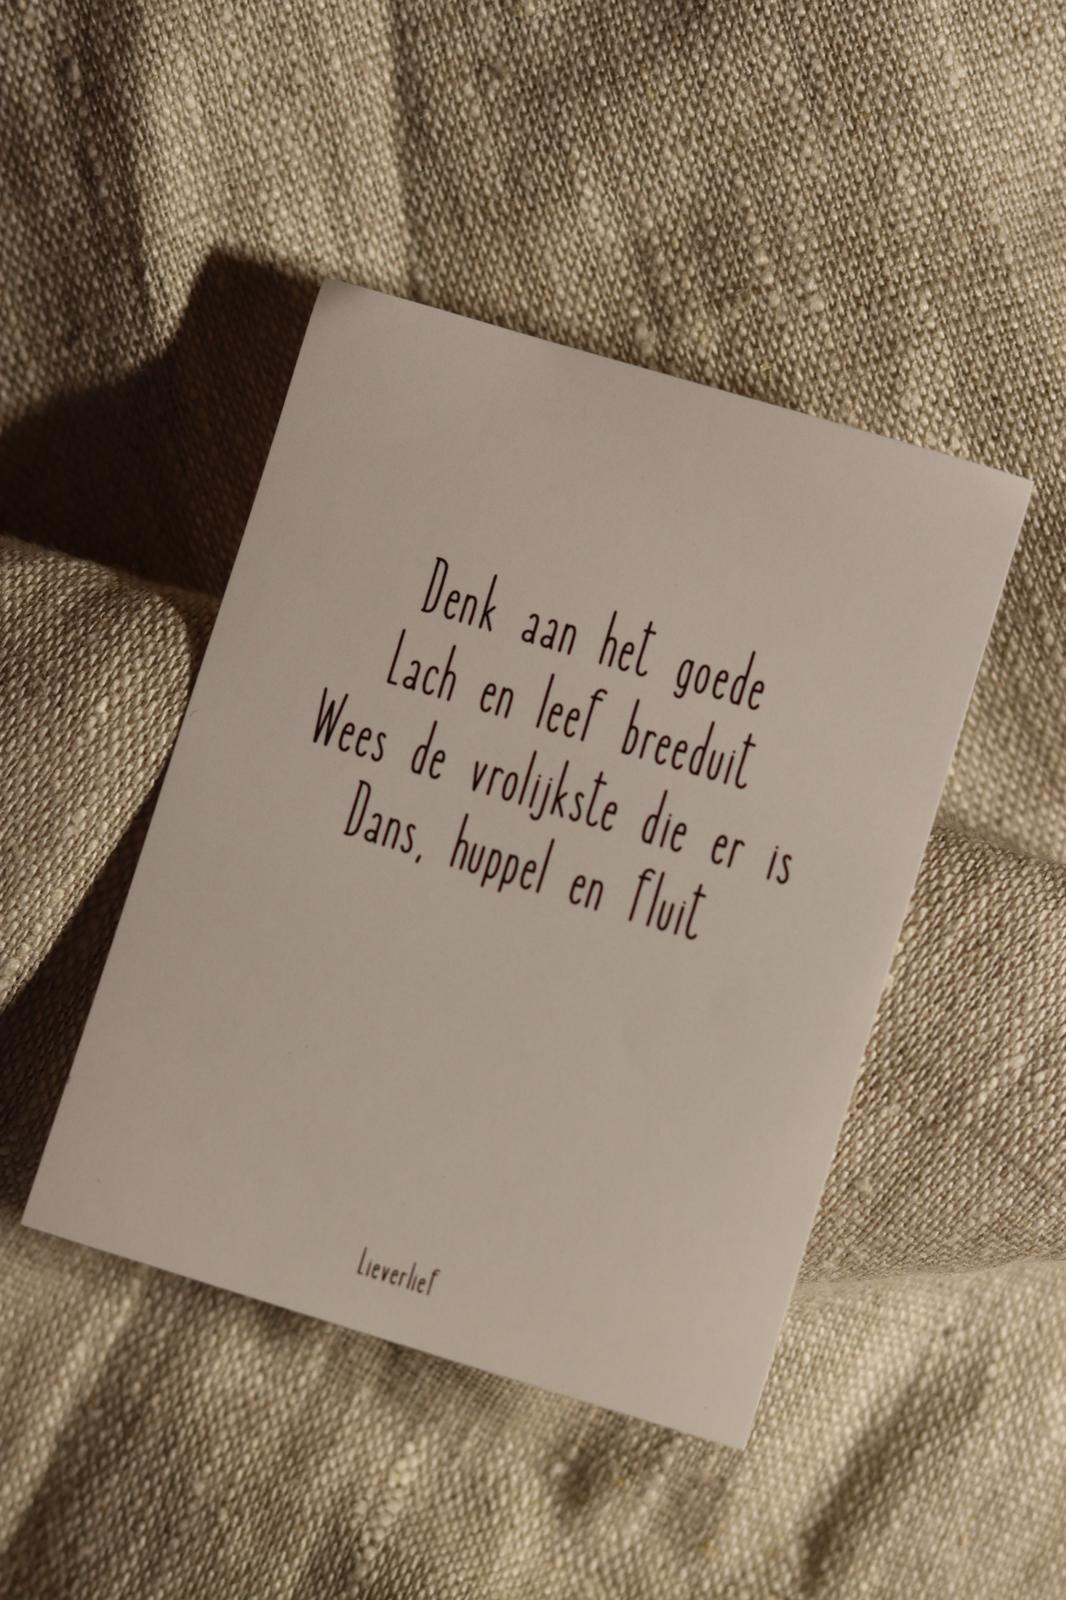 Denk aan het goede
Lach en leef breeduit
Wees de vrolijkste die er is
Dans, huppel en fluit
Lieverlief